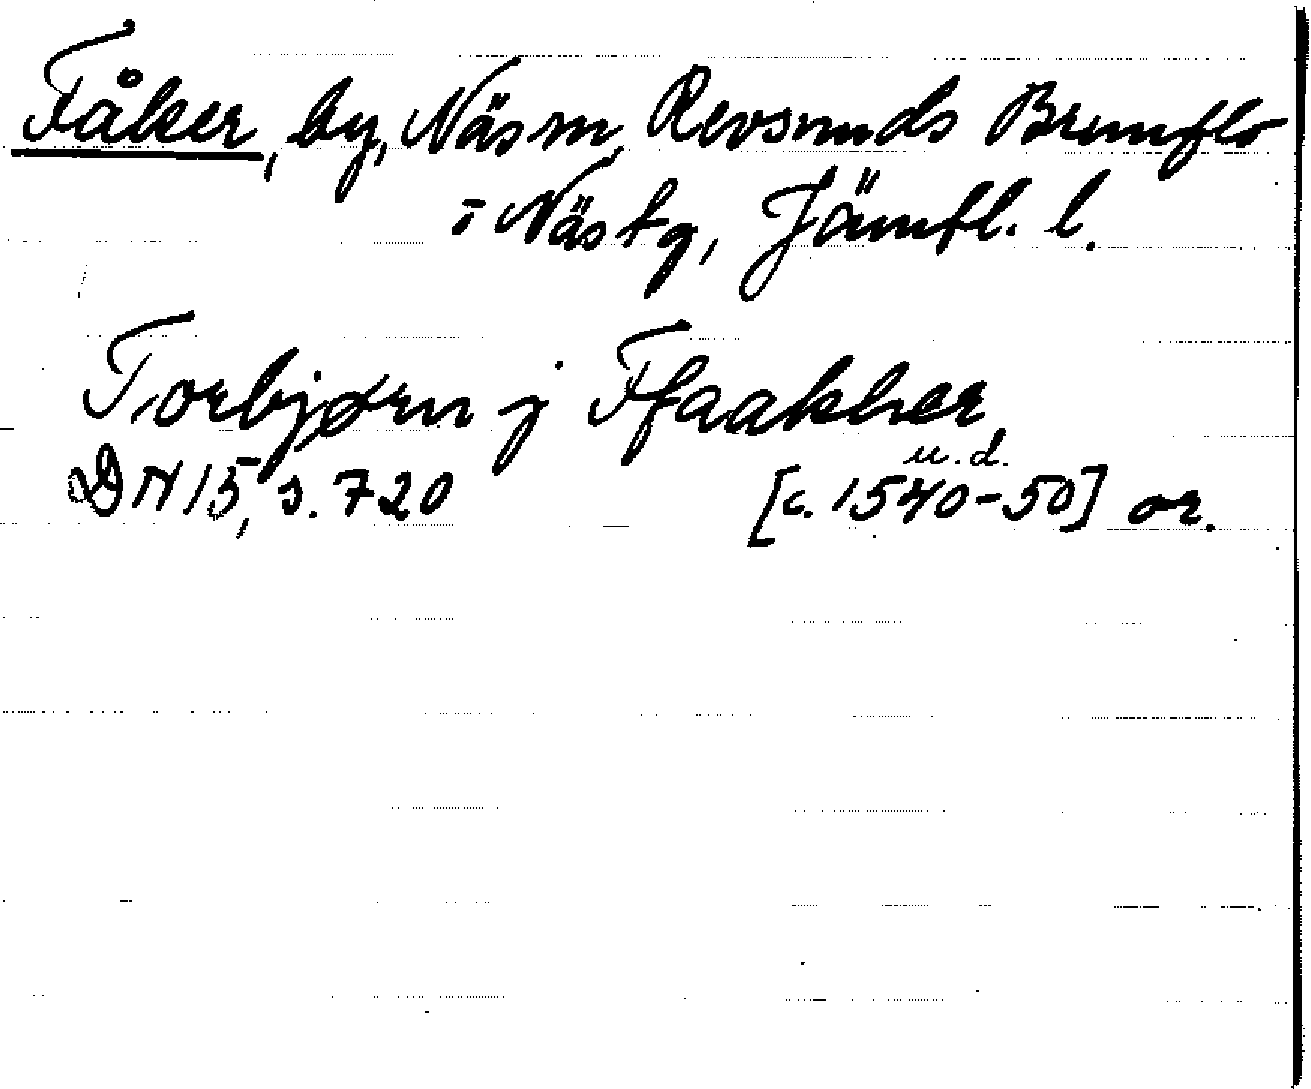 Fåker, by, Näs sn, Revsunds Brunflo
o Näs tg, Jämtl. l.
Torbjørn j Ffaakher,
u. d.
DN 15, s. 720 [c. 1540-50] or.